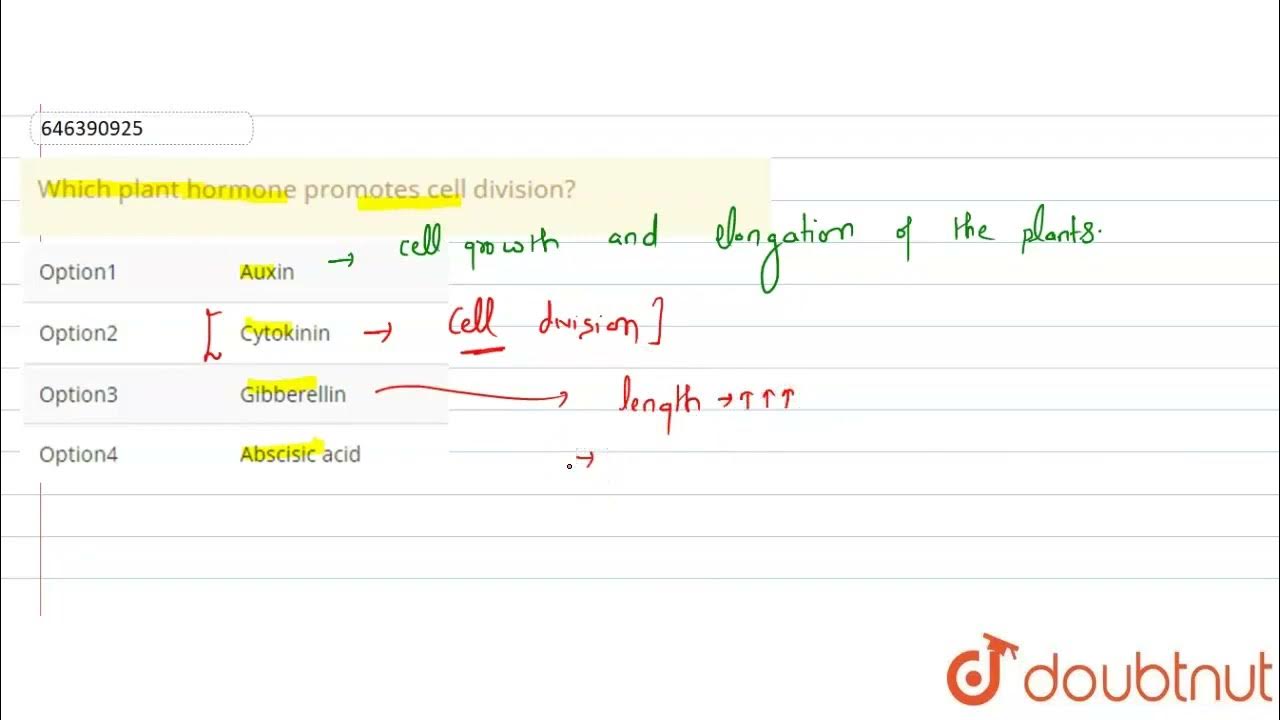 646390925
Which plant hormone promotes cell division?
Option1 Auxin → cell growth and elongation of the plants.
Option2 [ Cytokinin → Cell division ]
Option3 Gibberellin → length → ↑↑↑
Option4 Abscisic acid →
doubtnut